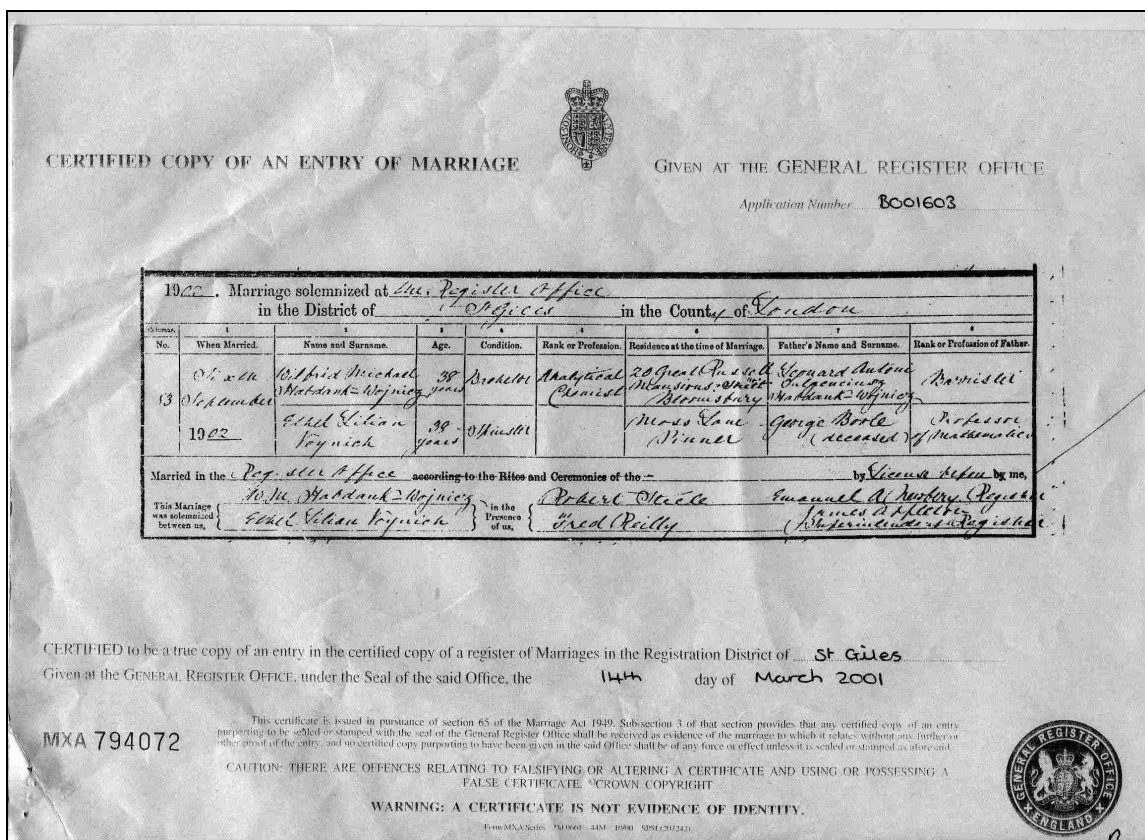 CERTIFIED COPY OF AN ENTRY OF MARRIAGE
GIVEN AT THE GENERAL REGISTER OFFICE
Application Number B001603
1902. Marriage solemnized at the Register Office
in the District of St Giles in the County of London
Columns. 1 2 3 4 5 6 7 8
No. When Married. Name and Surname. Age. Condition. Rank or Profession. Residence at the time of Marriage. Father's Name and Surname. Rank or Profession of Father.
Sixth Wilfrid Michael 38 Bachelor Analytical 20 Great Russell Leonard Antoni Barrister
13 September Habdank-Wojnicz years Chemist Mansions Street Habdank-Wojnicz
Bloomsbury
1902 Ethel Lilian 38 Spinster Moss Lane George Boole Professor
Voynich years Pinner (deceased) of Mathematics
Married in the Register Office according to the Rites and Ceremonies of the by License before by me,
This Marriage was solemnized between us, W. M. Habdank-Wojnicz in the Presence of us, Robert Steele Emanuel A. Newbery Registrar
Ethel Lilian Voynich Fred Reilly James Appleton
Superintendent Registrar
CERTIFIED to be a true copy of an entry in the certified copy of a register of Marriages in the Registration District of St Giles
Given at the GENERAL REGISTER OFFICE, under the Seal of the said Office, the 14th day of March 2001
MXA 794072
This certificate is issued in pursuance of section 65 of the Marriage Act 1949. Sub-section 3 of that section provides that any certified copy of an entry
purporting to be sealed or stamped with the seal of the General Register Office shall be received as evidence of the marriage to which it relates without any further or
other proof of the entry, and no certified copy purporting to have been given in the said Office shall be of any force or effect unless it is sealed or stamped as aforesaid.
CAUTION: THERE ARE OFFENCES RELATING TO FALSIFYING OR ALTERING A CERTIFICATE AND USING OR POSSESSING A
FALSE CERTIFICATE. ©CROWN COPYRIGHT
WARNING: A CERTIFICATE IS NOT EVIDENCE OF IDENTITY.
Form MXA Series
GENERAL REGISTER OFFICE
ENGLAND